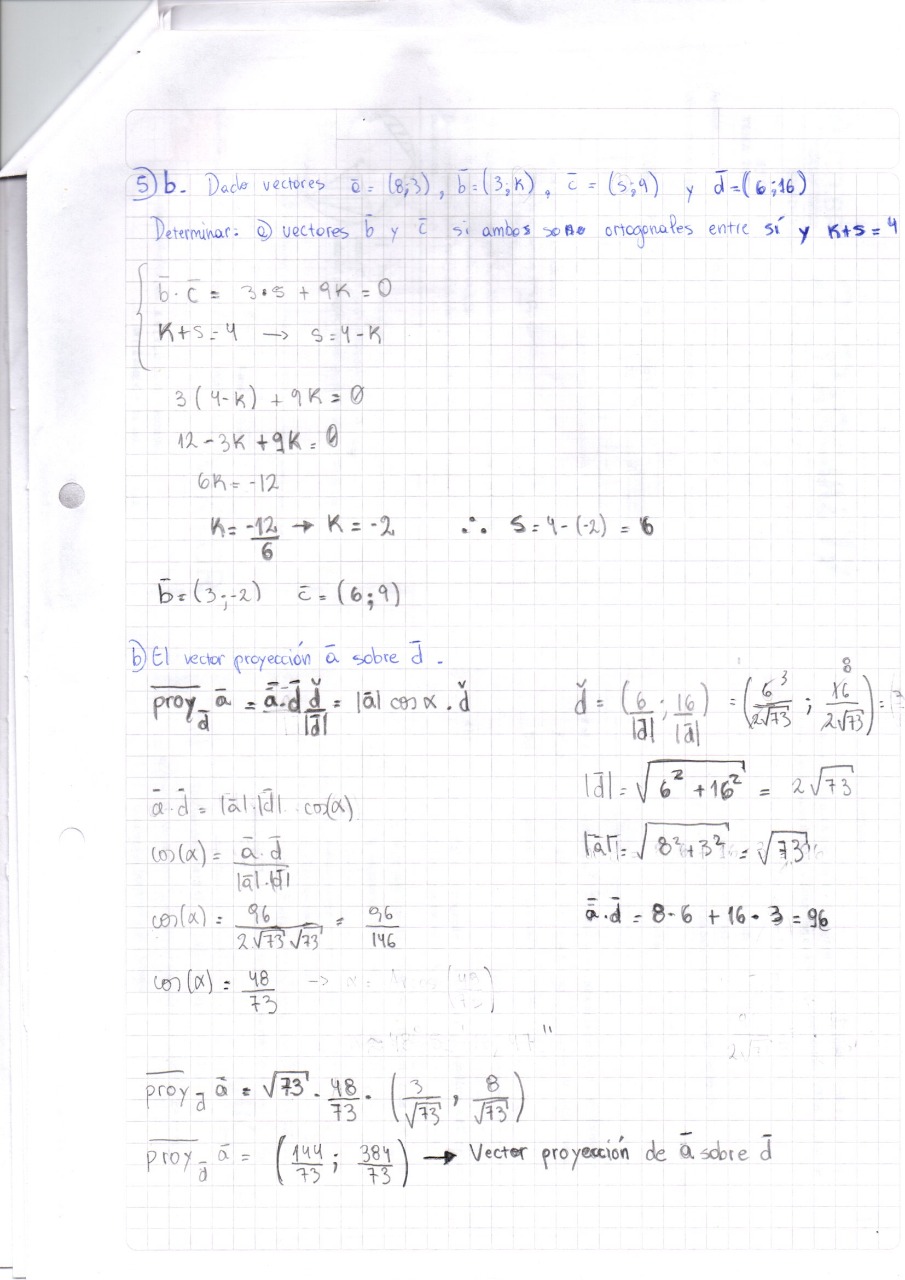 5) b. Dado vectores ā = (8;3), b̄ = (3;K), c̄ = (s;9) y d̄ = (6;16)
Determinar: a) vectores b̄ y c̄ si ambos sone ortogonales entre sí y K+s = 4
b̄ · c̄ = 3•s + 9K = 0
K+s = 4 → s = 4-K
3(4-K) + 9K = 0
12 - 3K + 9K = 0
6K = -12
K = -12/6 → K = -2 ∴ s = 4-(-2) = 6
b̄ = (3;-2) c̄ = (6;9)
b) El vector proyección ā sobre d̄.
proy_d̄ ā = ā·d̄ ď/|d̄| = |ā| cos α . ď
ď = (6/|d̄| ; 16/|d̄|) = (6/2√73 ; 16/2√73) =
3 8
|d̄| = √(6² + 16²) = 2√73
ā·d̄ = |ā|·|d̄| cos(α)
|ā| = √(8² + 3²) = √73
cos(α) = ā·d̄/|ā|·|d̄|
ā·d̄ = 8·6 + 16·3 = 96
cos(α) = 96/2√73 √73 = 96/146
cos(α) = 48/73
proy_d̄ ā = √73 · 48/73 · (3/√73 , 8/√73)
proy_d̄ ā = (144/73 ; 384/73) → Vector proyección de ā sobre d̄